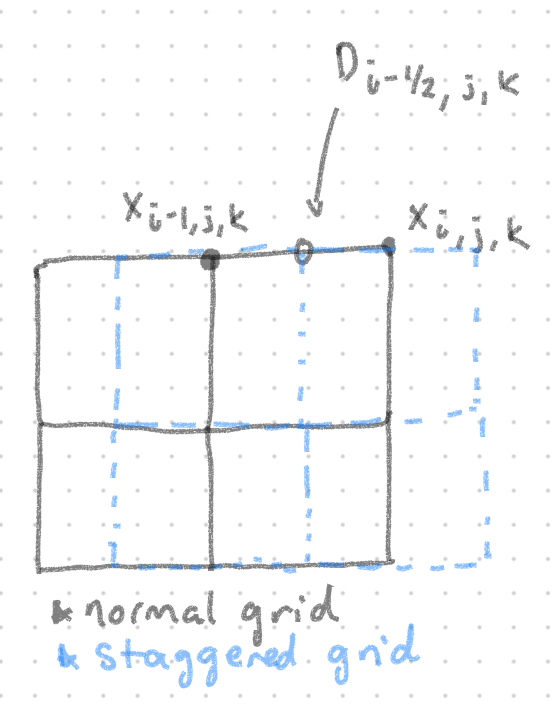 D i-1/2, j, k
x i-1, j, k
x i, j, k
* normal grid
* staggered grid